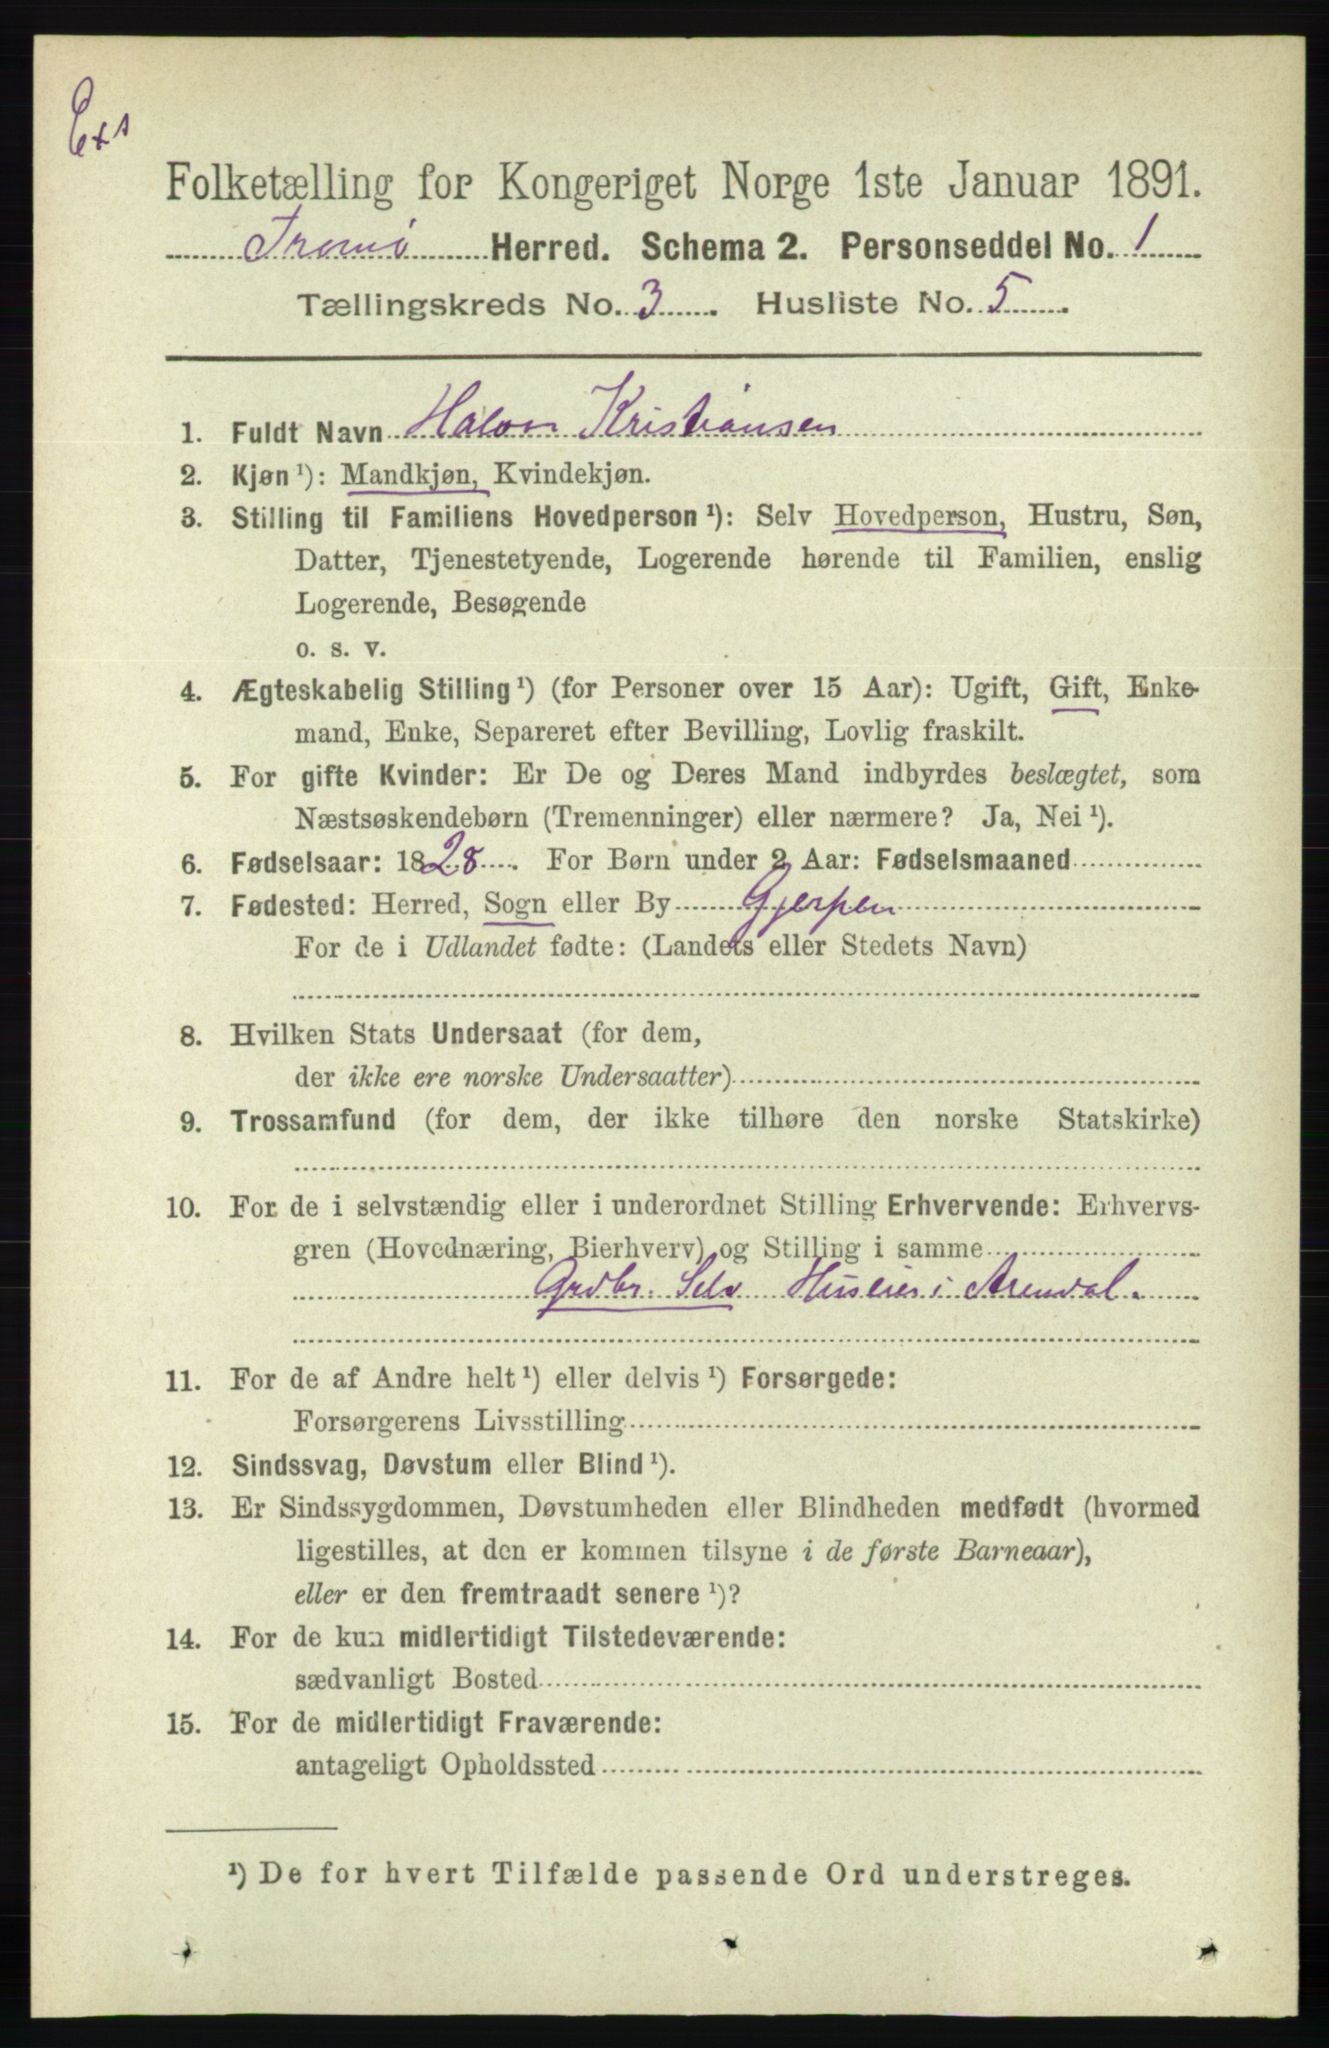 Folketælling for Kongeriget Norge 1ste Januar 1891.
Tromø Herred. Schema 2. Personseddel No. 1
Tællingskreds No. 3. Husliste No. 5.
1. Fuldt Navn Halvor Kristiansen
2. Kjøn ¹): Mandkjøn, Kvindekjøn.
3. Stilling til Familiens Hovedperson ¹): Selv Hovedperson, Hustru, Søn,
Datter, Tjenestetyende, Logerende hørende til Familien, enslig
Logerende, Besøgende
o. s. v.
4. Ægteskabelig Stilling ¹) (for Personer over 15 Aar): Ugift, Gift, Enke-
mand, Enke, Separeret efter Bevilling, Lovlig fraskilt.
5. For gifte Kvinder: Er De og Deres Mand indbyrdes beslægtet, som
Næstsøskendebørn (Tremenninger) eller nærmere? Ja, Nei ¹).
6. Fødselsaar: 1828. For Børn under 2 Aar: Fødselsmaaned
7. Fødested: Herred, Sogn eller By Gjerpen
For de i Udlandet fødte: (Landets eller Stedets Navn)
8. Hvilken Stats Undersaat (for dem,
der ikke ere norske Undersaatter)
9. Trossamfund (for dem, der ikke tilhøre den norske Statskirke)
10. For de i selvstændig eller i underordnet Stilling Erhvervende: Erhvervs-
gren (Hovednæring, Bierhverv) og Stilling i samme
Grdbr. Selv Huseier i Arendal.
11. For de af Andre helt ¹) eller delvis ¹) Forsørgede:
Forsørgerens Livsstilling
12. Sindssvag, Døvstum eller Blind ¹).
13. Er Sindssygdommen, Døvstumheden eller Blindheden medfødt (hvormed
ligestilles, at den er kommen tilsyne i de første Barneaar),
eller er den fremtraadt senere ¹)?
14. For de kun midlertidigt Tilstedeværende:
sædvanligt Bosted
15. For de midlertidigt Fraværende:
antageligt Opholdssted
¹) De for hvert Tilfælde passende Ord understreges.